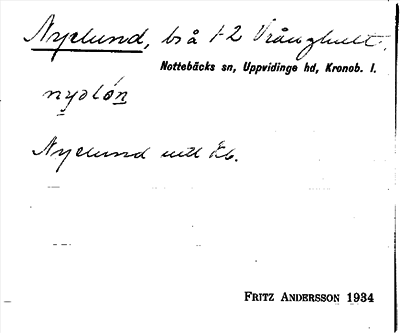 Nyelund, bs å 1-2 Vrånghult.
Nottebäcks sn, Uppvidinge hd, Kronob. l.
nyəlón
Nyelund utd Ek.
FRITZ ANDERSSON 1934